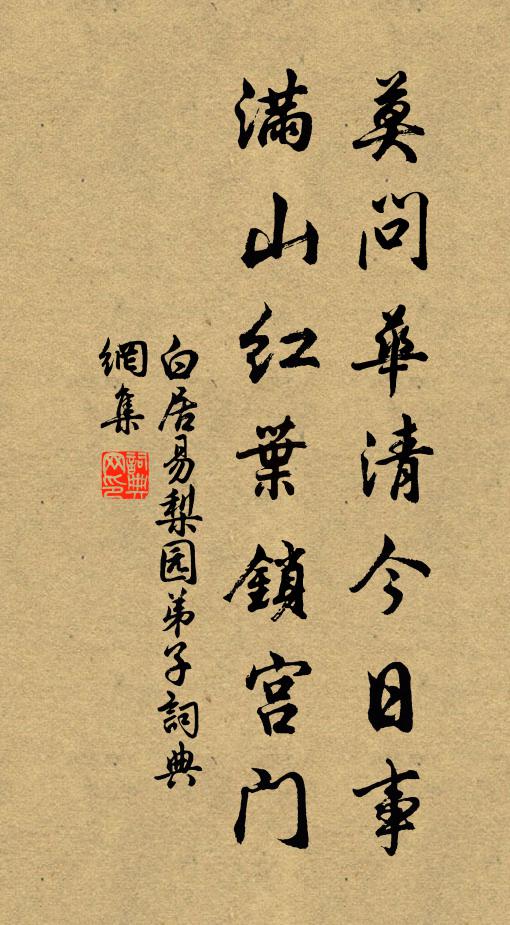 莫问華清今日事
满山红葉鎖宫门
白居易梨园弟子詞典
網集
詞典
网印